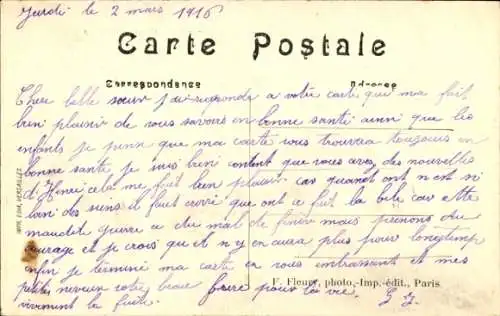 Jeudi le 2 mars 1916
Carte Postale
Correspondance
Adresse
Chere belle sœur j'ai repondre a votre carte qui ma fait
bien plaisir de vous savoire en bonne santé ainsi que les
enfants je pense que ma carte vous trouvera toujours en
bonne santé je suis bien content que vous avez des nouvelles
d'Henri cela me fait bien plaisir car quand ont n est ni
loin des siens il faut croire que ont ce fait la bile car cette
maudite guerre a du mal de finire mais prenons du
courage et je crois que il n y en aura plus pour longtemps
enfin je termine ma carte en vous embrassant et mes
petits neveux votre beau frere pour la vie.
vivement la fuite
IMPR. EDIA, VERSAILLES
F. Fleury, photo.-Imp.-édit., Paris